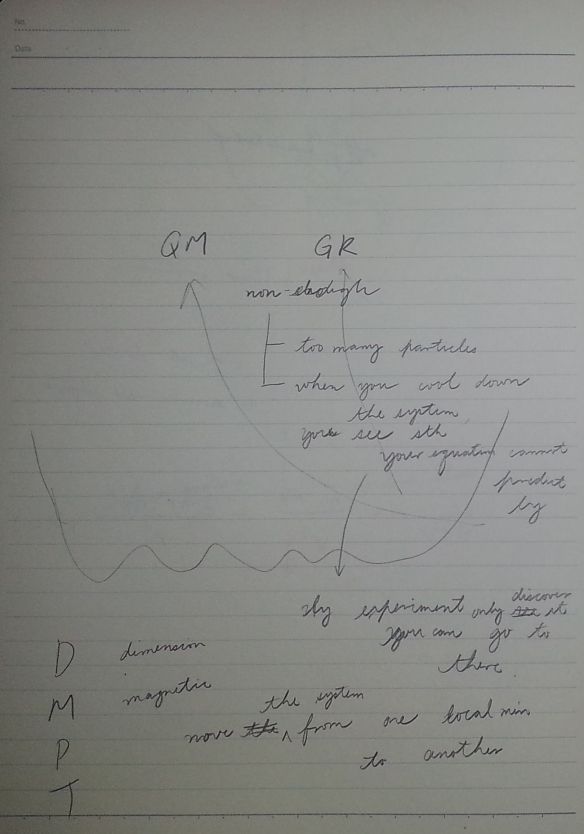 No.
Date
QM GR
non-
too many particles
when you cool down
the system
you see sth
your equation cannot
predict
by
by experiment only discover it
you can go to
there
D dimension
M magnetic
the system
move from one local min
P
to another
T